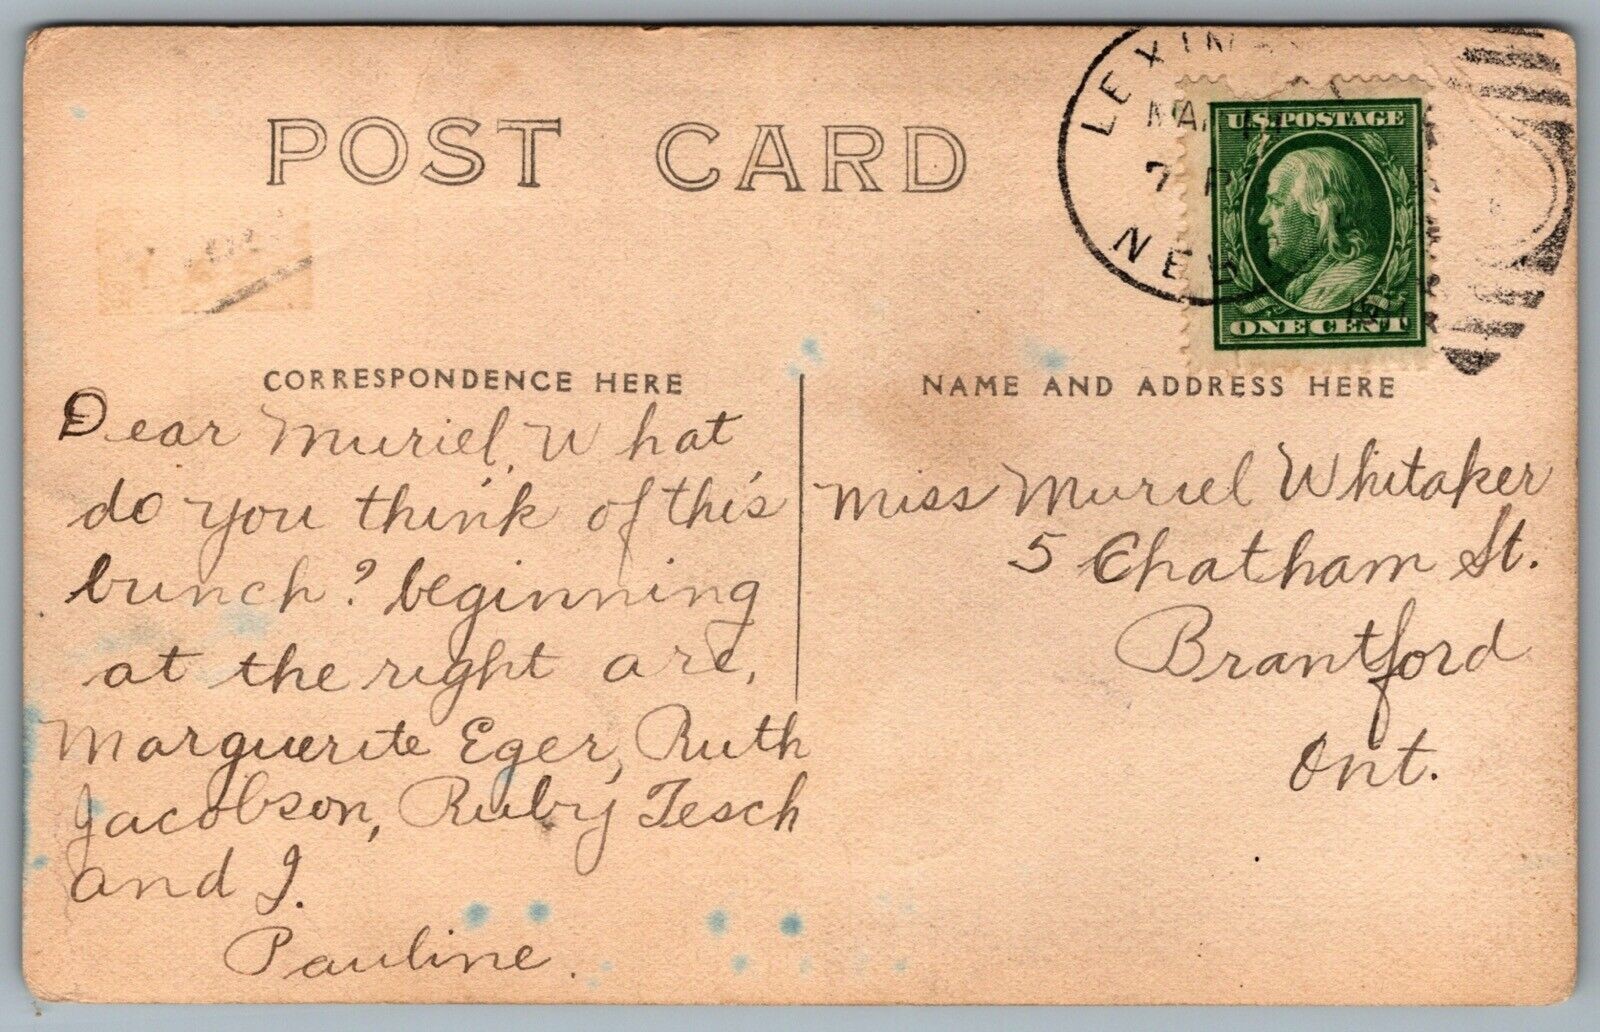 POST CARD
NEB
7 P
U.S. POSTAGE
ONE CENT
CORRESPONDENCE HERE
NAME AND ADDRESS HERE
Dear Muriel, What
do you think of this
bunch? beginning
at the right are,
Marguerite Eger, Ruth
Jacobson, Ruby Tesch
and I.
Pauline.
Miss Muriel Whitaker
5 Chatham St.
Brantford
Ont.